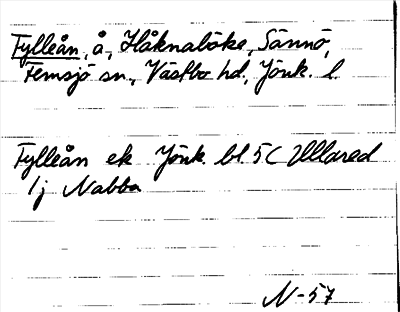 Fylleån, å, Håknaböke, Sännö,
Femsjö sn., Västbo hd., Jönk. l.
Fylleån ek Jönk. bl. 5C Ullared
1j Nabba
N-57